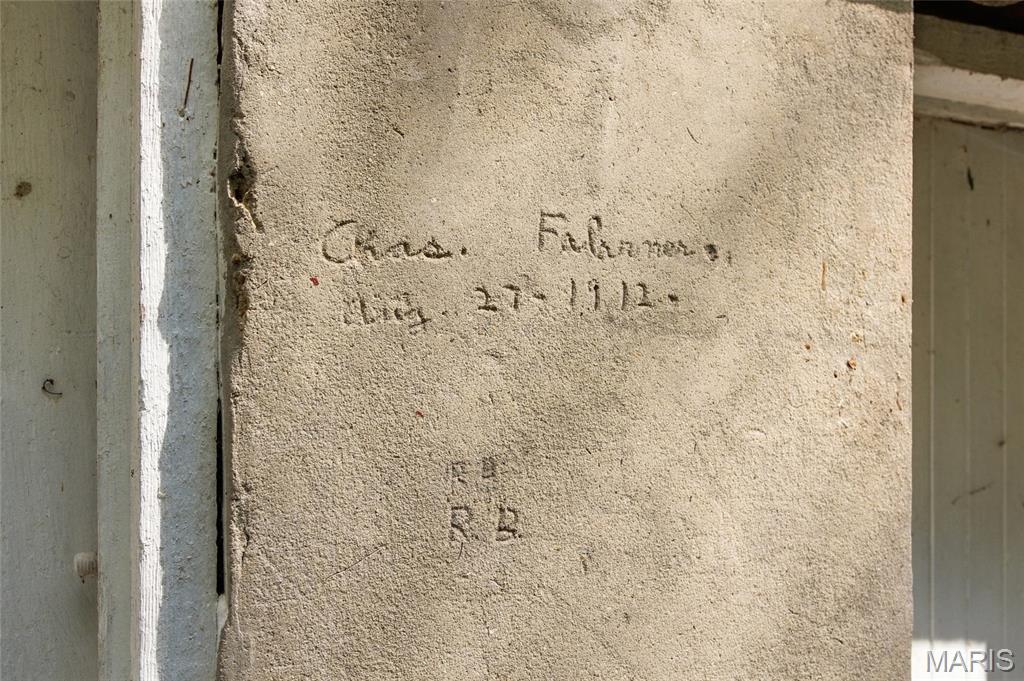 Chas. Fahrner.
Aug. 27-1912-
R B
R B
MARIS